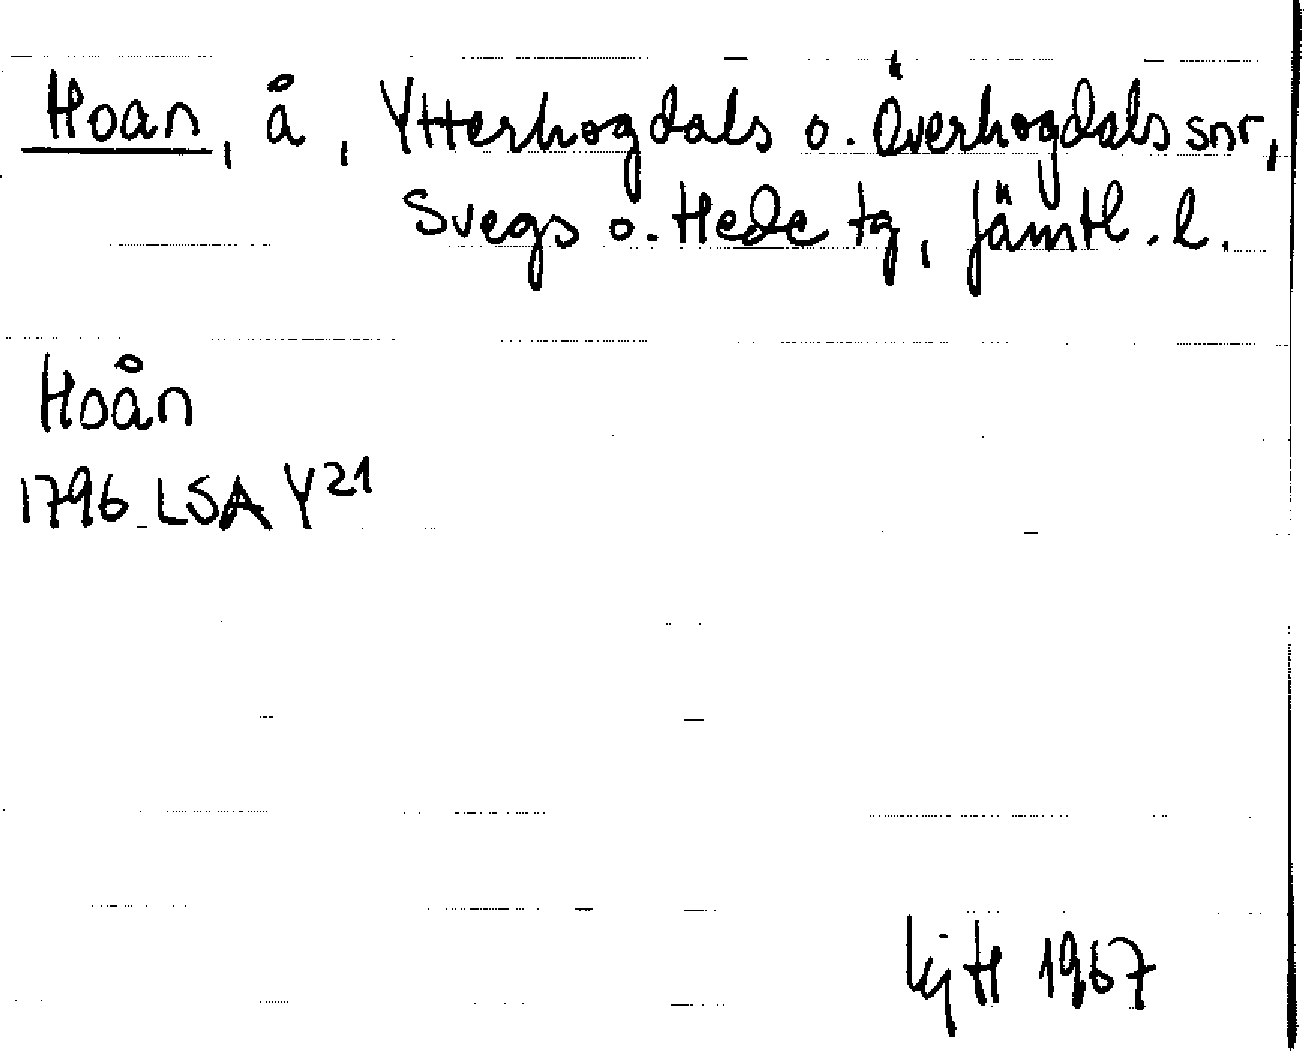 Hoan, å, Ytterhogdals o. Överhogdals snr,
Svegs o. Hede tg, Jämtl. l.
Hoån
1796 LSA Y21
1967